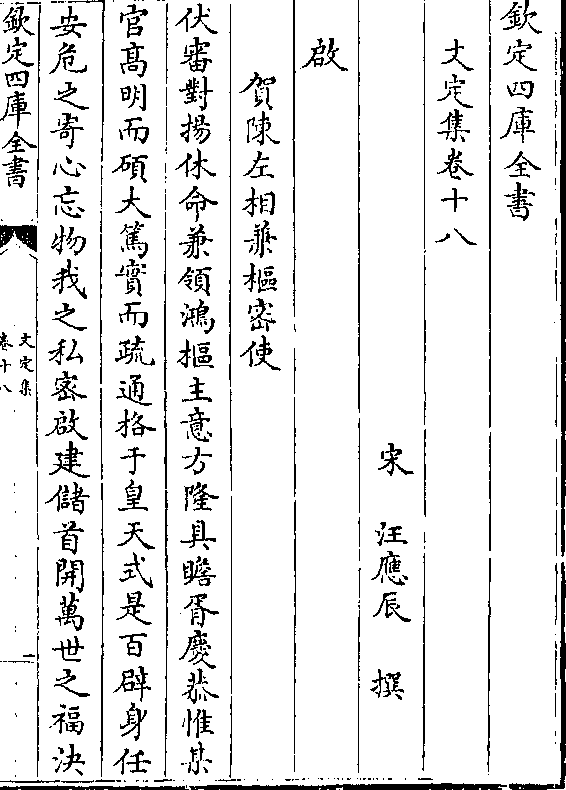 欽定四庫全書
文定集卷十八
宋　汪應辰　撰
啟
賀陳左相兼樞密使
伏審對揚休命兼領鴻樞主意方隆具瞻胥慶恭惟某
官髙明而碩大篤實而疏通格于皇天式是百辟身任
安危之寄心忘物我之私密啟建儲首開萬世之福決
欽定四庫全書
文定集
卷十八
一